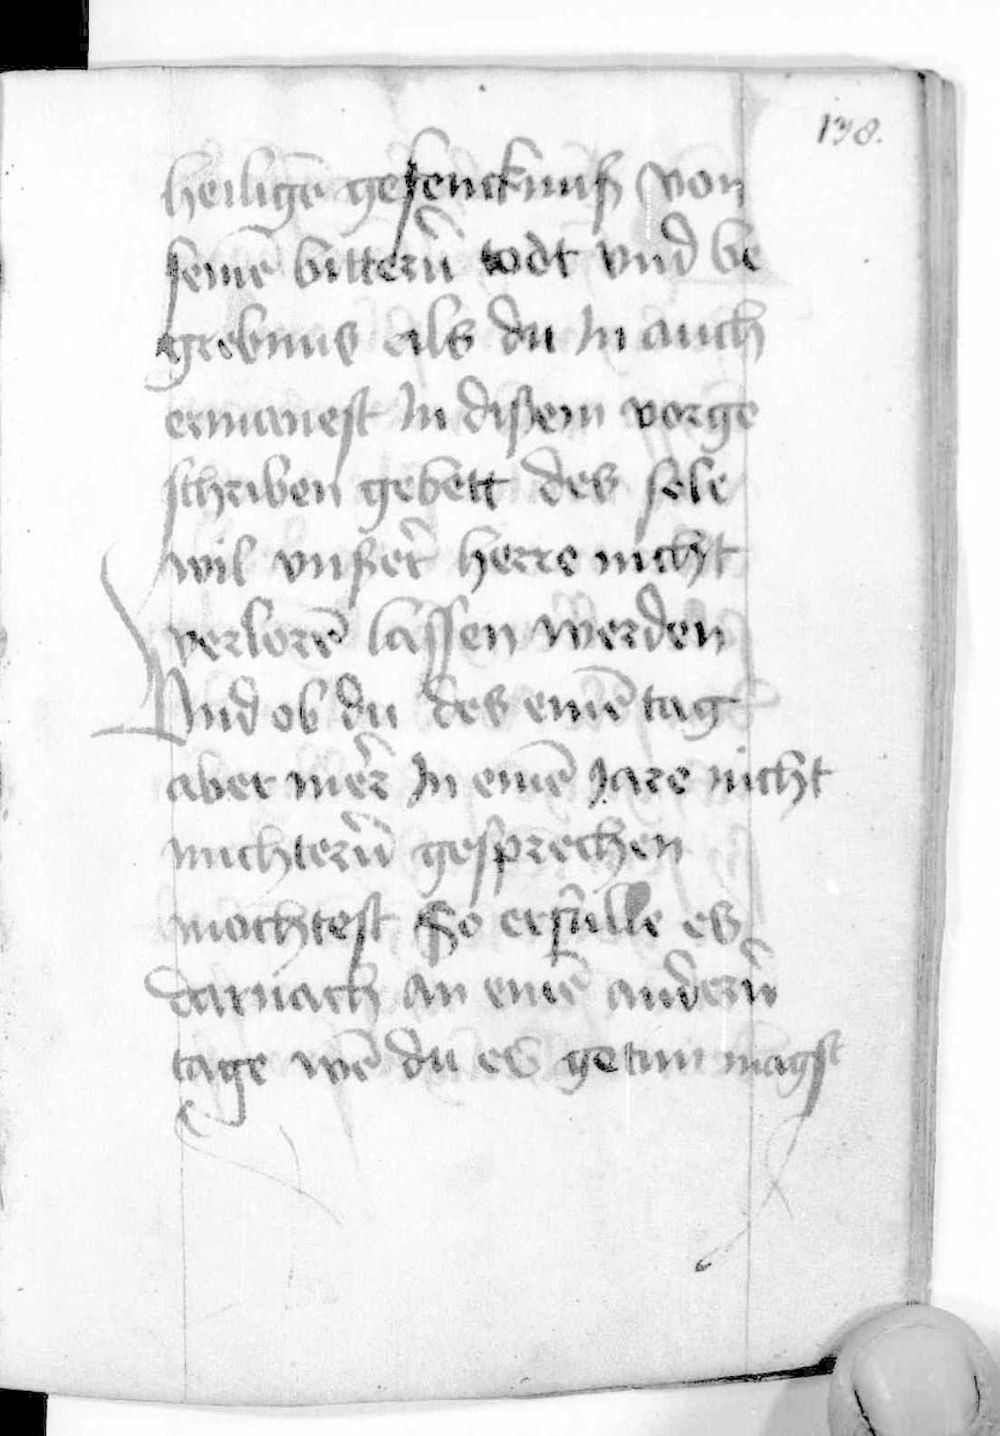 138.
heiligē gefenckniß von
seinē bitterñ todt vnd be
grebnus als du In auch
ermanest In dißem vorge
schriben gebett des sele
wil vnßer herre nicht
verlorē lassen werden
Vnd ob du des einē tag
aber mer In einē Jare nicht
nuchterñ gesprechen
mochtest So erfulle es
darnach an einē anderñ
tage wē du es getun magst